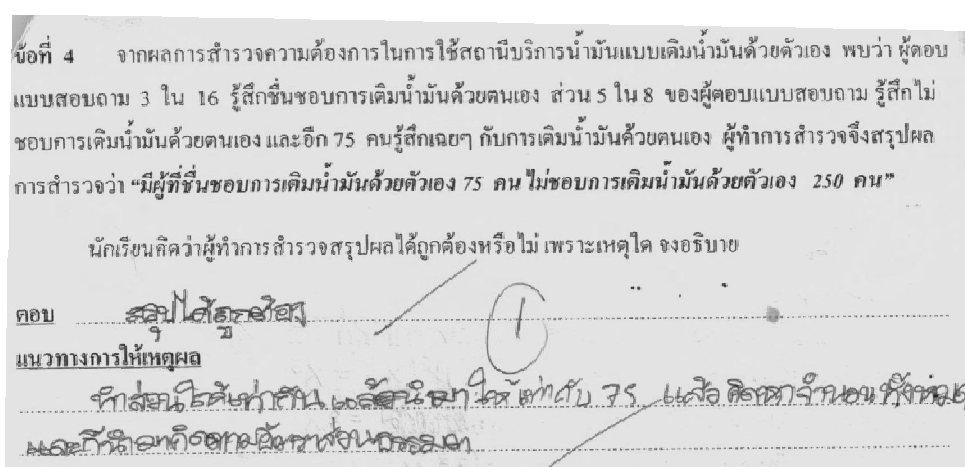 ข้อที่ 4 จากผลการสำรวจความต้องการในการใช้สถานีบริการน้ำมันแบบเติมน้ำมันด้วยตัวเอง พบว่า ผู้ตอบ
แบบสอบถาม 3 ใน 16 รู้สึกชื่นชอบการเติมน้ำมันด้วยตนเอง ส่วน 5 ใน 8 ของผู้ตอบแบบสอบถาม รู้สึกไม่
ชอบการเติมน้ำมันด้วยตนเอง และอีก 75 คนรู้สึกเฉยๆ กับการเติมน้ำมันด้วยตนเอง ผู้ทำการสำรวจจึงสรุปผล
การสำรวจว่า “มีผู้ที่ชื่นชอบการเติมน้ำมันด้วยตัวเอง 75 คน ไม่ชอบการเติมน้ำมันด้วยตัวเอง 250 คน”
นักเรียนคิดว่าผู้ทำการสำรวจสรุปผลได้ถูกต้องหรือไม่ เพราะเหตุใด จงอธิบาย
ตอบ สรุปได้ถูกต้อง
1
แนวทางการให้เหตุผล
ทำส่วนให้เท่ากัน แล้วนำมาให้เท่ากับ 75 แล้วคิดหาจำนวนทั้งหมด
และก็นำมาคิดตามอัตราส่วนธรรมดา